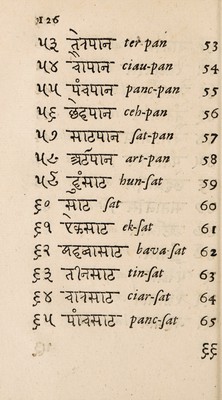 126
५३ त्रेपान ter-pan 53
५४ चापान ciau-pan 54
५५ पंचपान panc-pan 55
५६ छेहपान ceh-pan 56
५७ साटपान ſat-pan 57
५८ अर्टपान art-pan 58
५९ हुंसाट hun-ſat 59
६० साट ſat 60
६१ एकसाट ek-ſat 61
६२ बहबासाट bava-ſat 62
६३ तीनसाट tin-ſat 63
६४ चारसाट ciar-ſat 64
६५ पांचसाट panc-ſat 65
६६